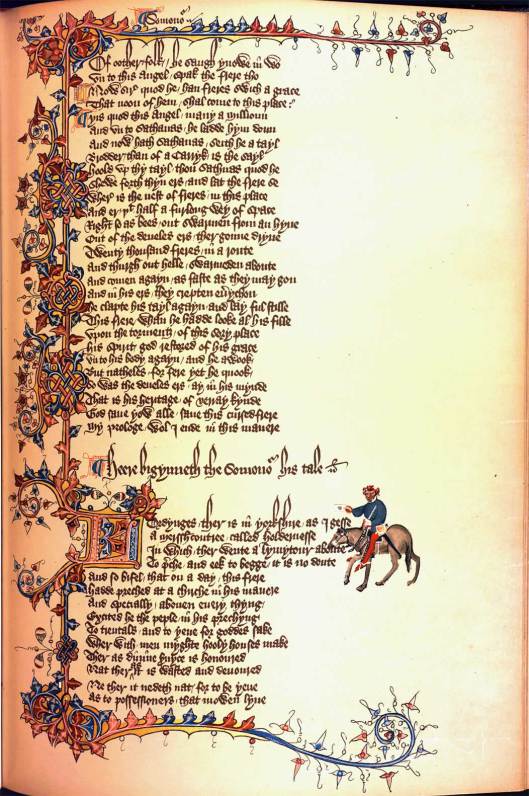 Somonoʳ
Of oother folk / he saugh ynowe in wo
Vn to this angel / spak the frere tho
Now sir / quod he / han freres swich a grace
That noon of hem / shal come to this place
Yis quod this Angel / many a millioun
And vn to Sathanas / he ladde hym doun
And now hath Sathanas / seith he a tayl
Brodder / than of a Carryk is the sayl
Hoold vp thy tayl / thou Sathanas quod he
Shewe forth thyn ers / and lat the frere se
Wher is the nest of freres / in this place
And er þt half a furlong wey of space
Right so as bees / out swarmen from an hyue
Out of the deueles ers / ther gonne dryue
Twenty thousand freres / in a route
And thurgh out helle / swarmeden aboute
And comen agayn / as faste as they may gon
And in his ers / they crepten euerychon
He clapte his tayl agayn / and lay ful stille
This frere / whan he hadde looke al his fille
Vpon the tormentz / of this sory place
His spirit god restored of his grace
Vn to his body agayn / and he awook
But nathelees / for fere yet he quook
So was the deueles ers / ay in his mynde
That is his heritage / of verray kynde
God saue yow alle / saue this cursed frere
My prologe / wol I ende in this manere
Heere bigynneth the Somonoʳ his tale
Lordynges / ther is in yorkshire / as I gesse
A mersshcontree / called Holdernesse
In which / ther wente a lymytour aboute
To p̄che / and eek to begge / it is no doute
And so bifel / that on a day / this frere
Hadde preched at a chirche in his manere
And specially / abouen euery thyng
Excited he the peple / in his prechyng
To trentals / and to yeue for goddes sake
Wher with men myghte hooly houses make
Ther as diuine seruyce is honoured
Nat ther as it is wasted and deuoured
Ne ther it nedeth nat / for to be yeue
As to possessioners / that mowen lyue